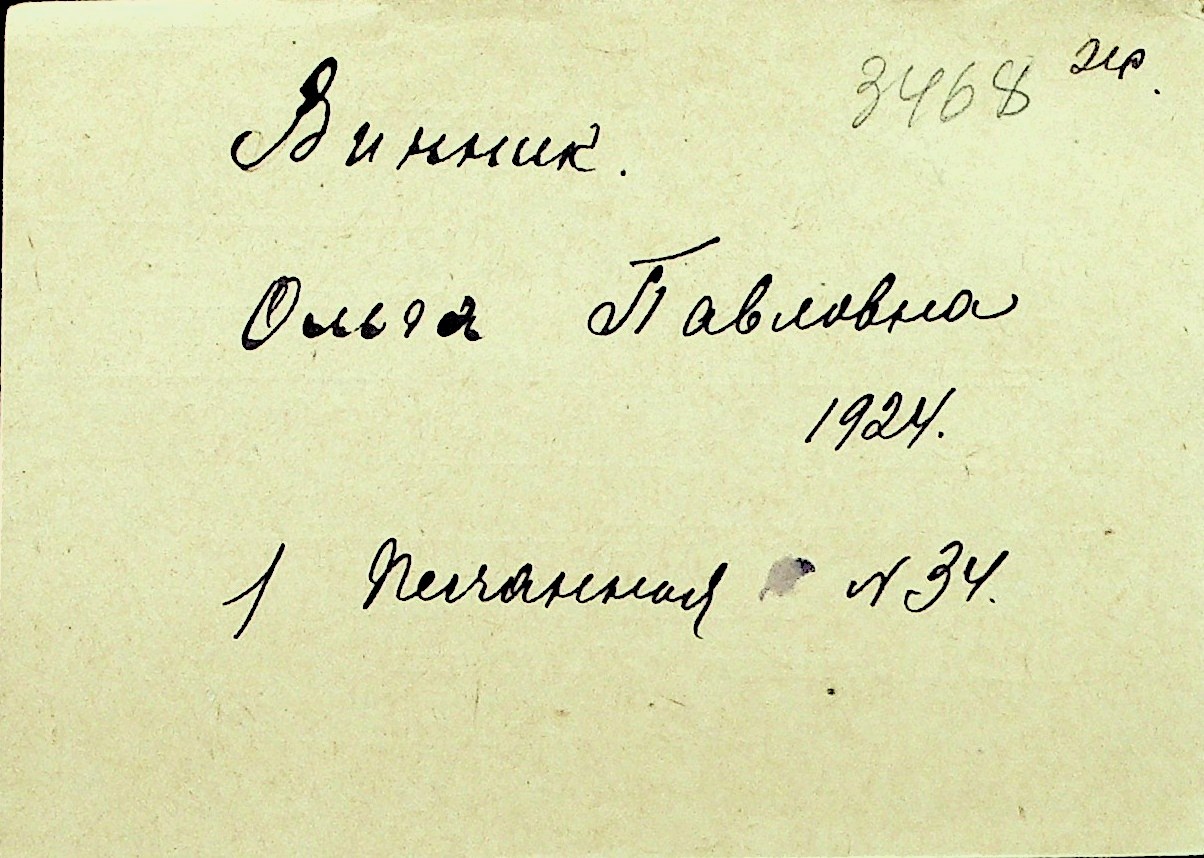 3468
Винник.
Ольга Павловна
1924.
1 Песчанная N 34.